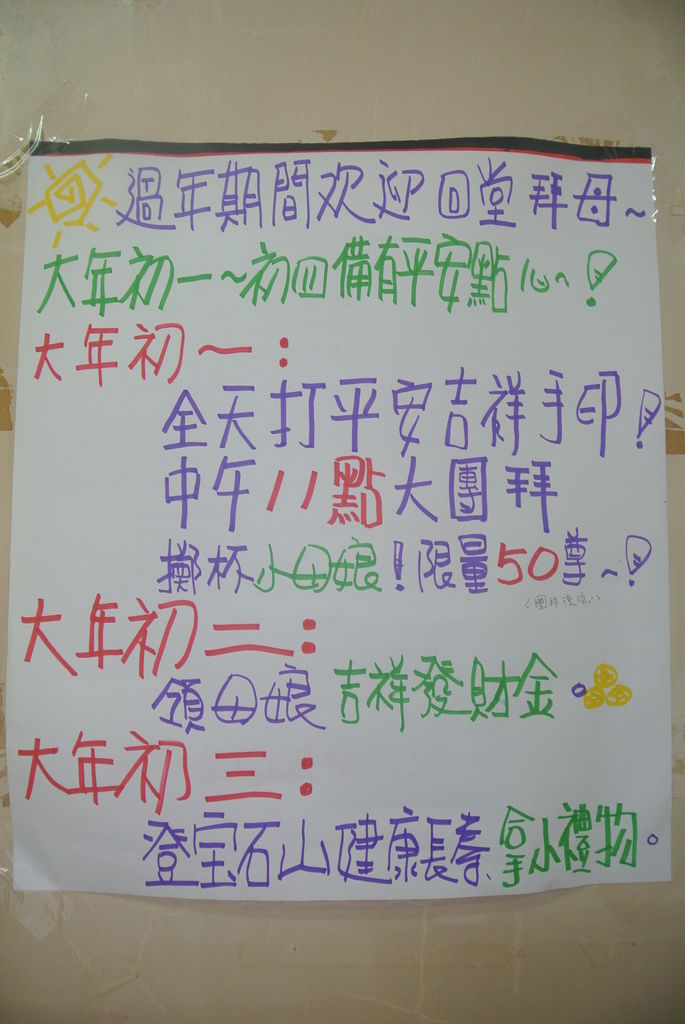 過年期間欢迎回堂拜母~
大年初一~初四備有平安點心~!
大年初一:
全天打平安吉祥手印!
中午11點大團拜
擲杯小母娘!限量50尊~!
(團拜後喔~)
大年初二:
領母娘吉祥發財金。
大年初三:
登宝石山健康長壽拿小禮物。